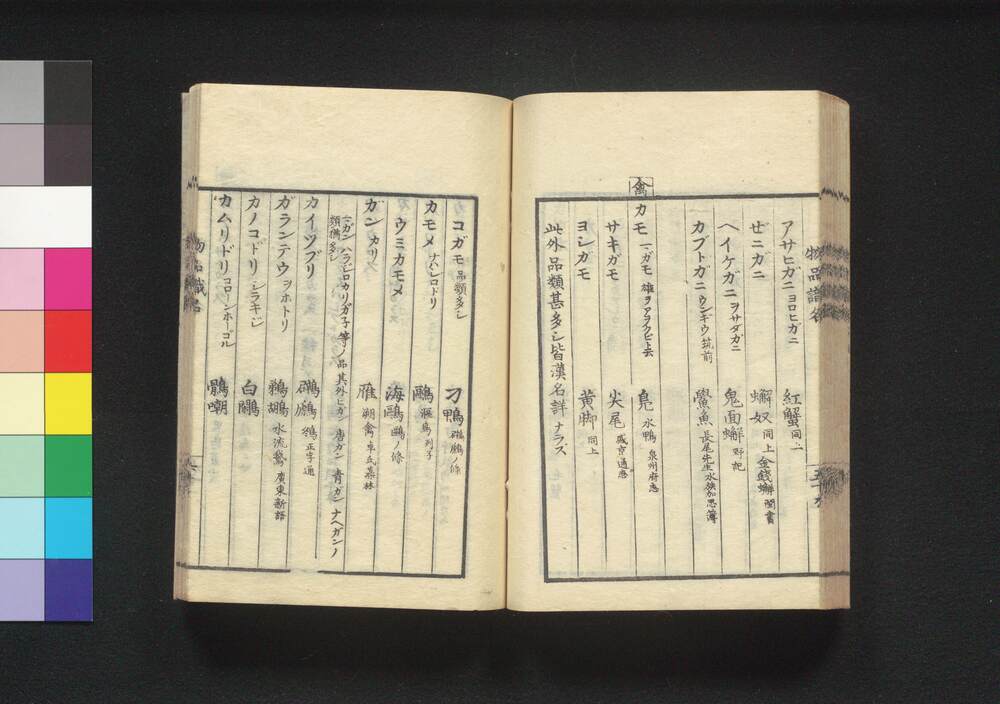 アサヒガニ ヨロヒガニ 紅蟹 同上
ゼニガニ 蠏奴 同上 金錢蠏 閩書
ヘイケガニ ヲサダガニ 鬼面蠏 野記
カブトガニ ウンキウ 筑前 鱟魚 長尾先生 水族加恩簿
禽
カモ 一ガモ 雄ヲアヲクビト云 鳧 水鴨 泉州府志
サキガモ 尖尾 盛京通志
ヨシガモ 黄脚 同上
此外品類甚多シ皆漢名詳ナラズ
物品識名
コガモ 品類多シ 刁鴨 鸊鷉ノ條
カモメ ナハシロドリ 鷗 漚鳥 列子
ウミカモメ 海鷗 鷗ノ條
ガン カリ 雁 朔禽 卓氏藻林
一ガン ハラビロカリガ子等ノ品其外ヒカン 唐ガン 青ガン ナベガンノ
類猶多シ
カイツブリ 鸊鷉 鴔 正字通
ガランテウ ヲホトリ 鵜鶘 水流鵞 廣東新語
カノコドリ シラキジ 白鷴
カムリドリ コローンホーゴル 鶻嘲
物品識名